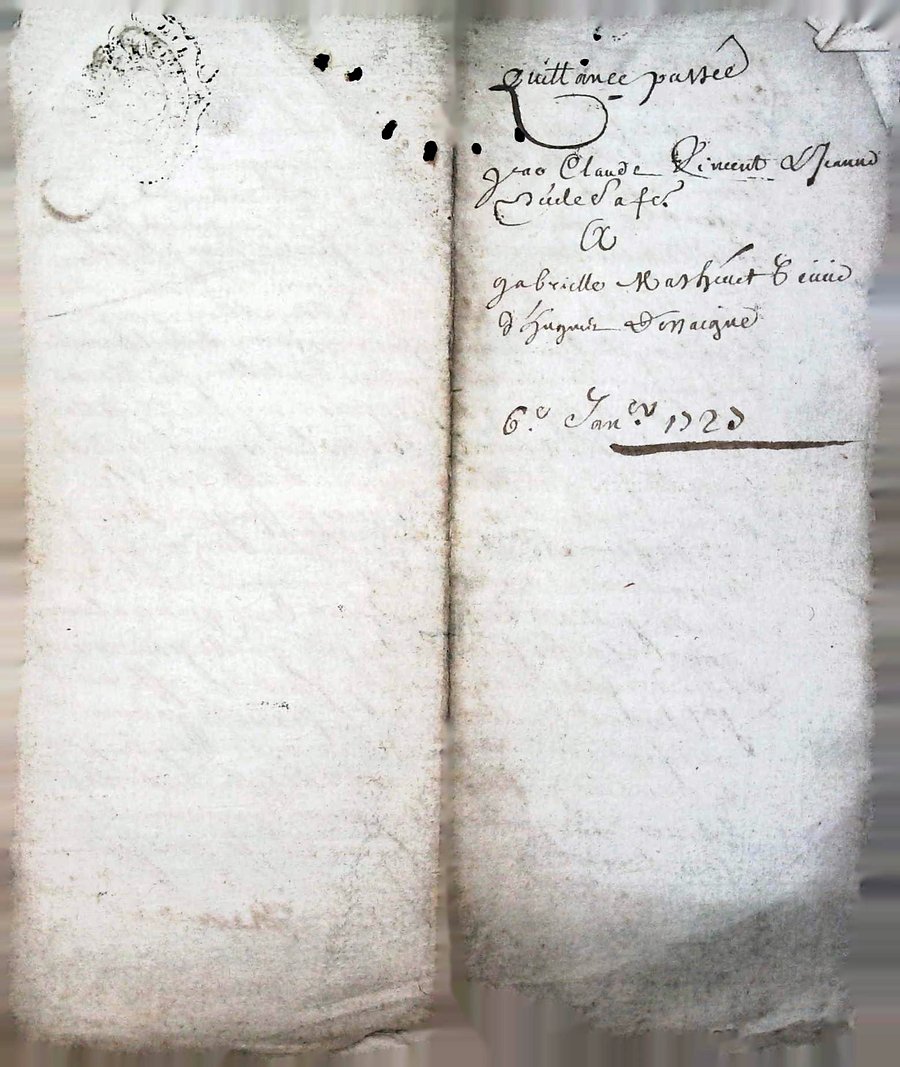 quittance passée
par Claude Vincent & Jeanne
sa fe
A
gabrielle Mathiuet Veuve
d'hugues
6.e Janer 1727